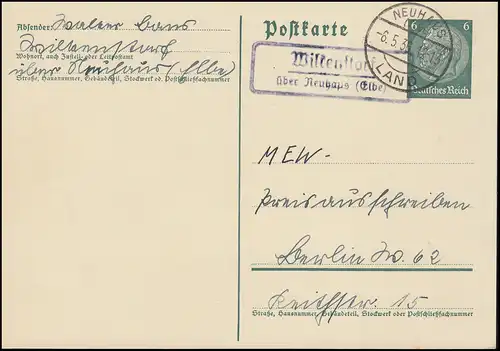 Absender: Walter Cans
Wilkenstorf
Wohnort, auch Zustell- oder Leitpostamt
über Neuhaus/Elbe)
Straße, Hausnummer, Gebäudeteil, Stockwerk od. Postschließfachnummer
Postkarte
NEUHAUS
-6.5.3
LAND
6 6
Deutsches Reich
Wilkenstorf
über Neuhaus (Elbe)
MEW-
Preisausschreiben
Berlin W. 62
Keithstr. 15
Straße, Hausnummer, Gebäudeteil, Stockwerk oder Postschließfachnummer